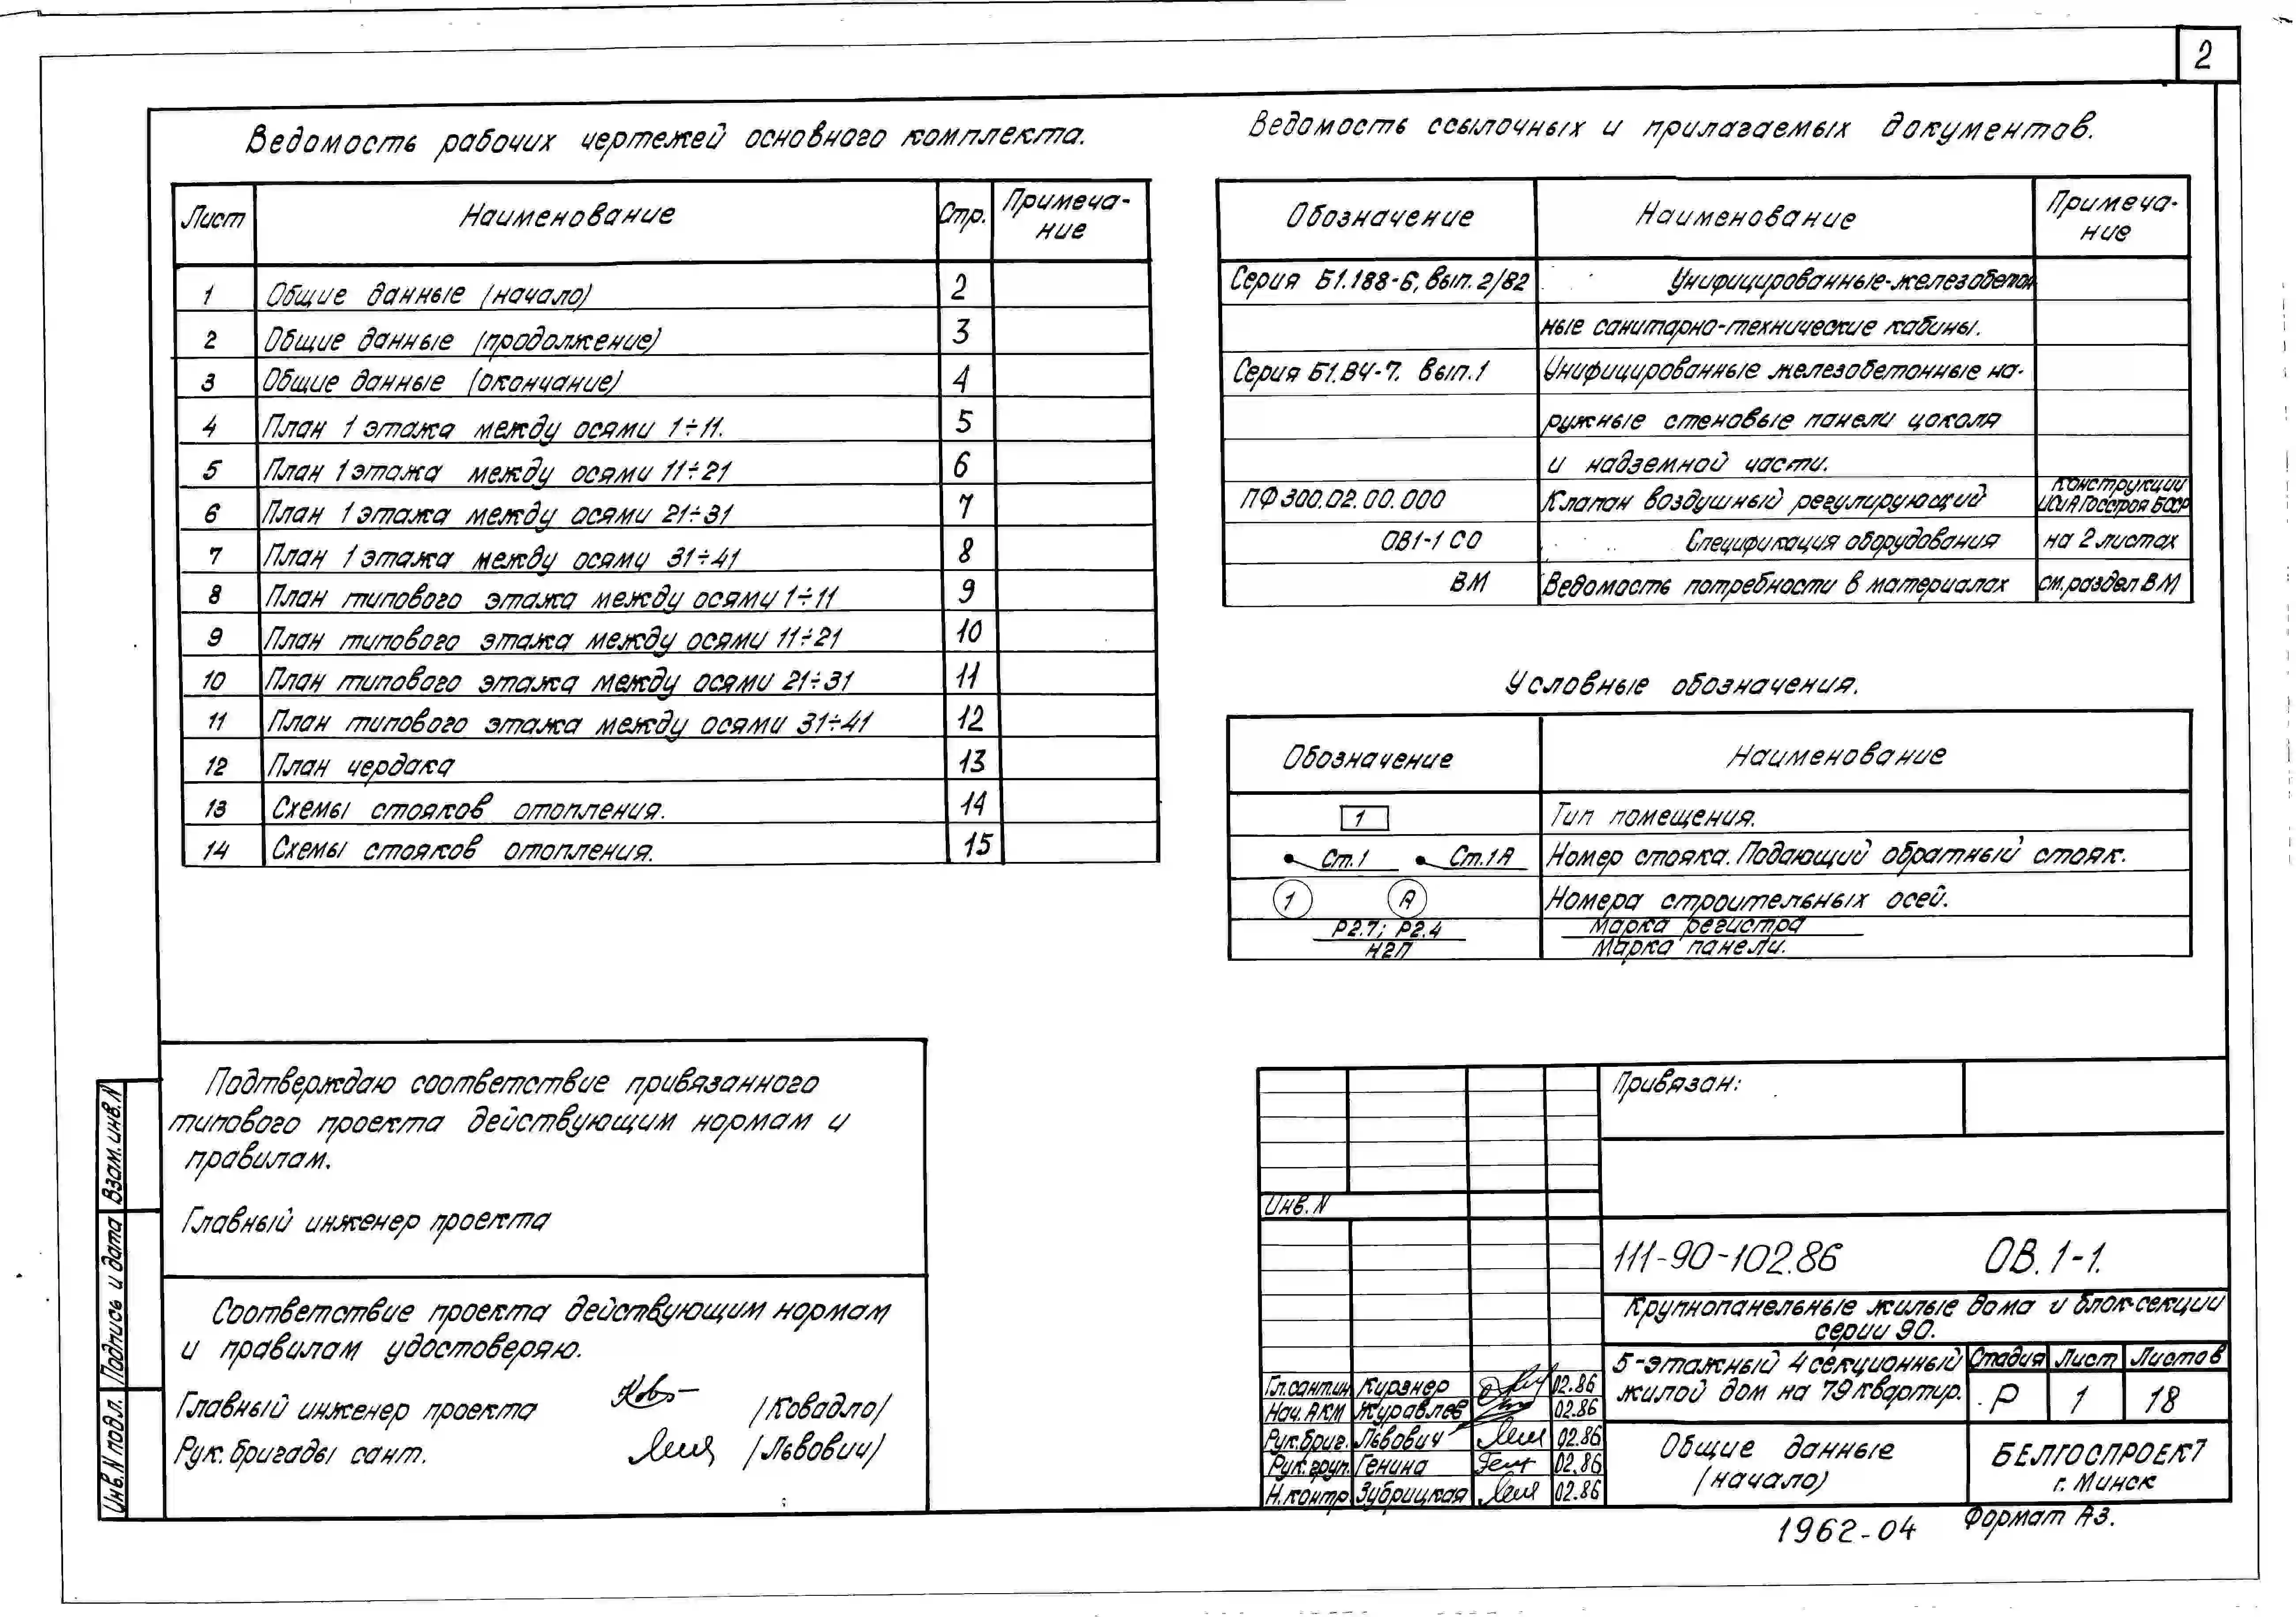 2
Ведомость рабочих чертежей основного комплекта.
Лист Наименование Стр. Примеча-
ние
1 Общие данные (начало) 2
2 Общие данные (продолжение) 3
3 Общие данные (окончание) 4
4 План 1 этажа между осями 1÷11. 5
5 План 1 этажа между осями 11÷21 6
6 План 1 этажа между осями 21÷31 7
7 План 1 этажа между осями 31÷41 8
8 План типового этажа между осями 1÷11 9
9 План типового этажа между осями 11÷21 10
10 План типового этажа между осями 21÷31 11
11 План типового этажа между осями 31÷41 12
12 План чердака 13
13 Схемы стояков отопления. 14
14 Схемы стояков отопления. 15
Ведомость ссылочных и прилагаемых документов.
Обозначение Наименование Примеча-
ние
Серия Б1.188-6, вып. 2/82 Унифицированные-железобетон
ные санитарно-технические кабины.
Серия Б1.В4-7. вып.1 Унифицированные железобетонные на-
ружные стеновые панели цоколя
и надземной части.
ПФ300.02.00.000 Клапан воздушный регулирующий конструкции
ИСиА Госстроя БССР
ОВ1-1 СО Спецификация оборудования на 2 листах
ВМ Ведомость потребности в материалах см. раздел ВМ
Условные обозначения.
Обозначение Наименование
1 Тип помещения.
Ст.1 Ст.1А Номер стояка. Подающий обратный стояк.
1 А Номера строительных осей.
Р2.7; Р2.4 Марка регистра
Н2П Марка панели.
Подтверждаю соответствие привязанного
типового проекта действующим нормам и
правилам.
Главный инженер проекта
Соответствие проекта действующим нормам
и правилам удостоверяю.
Главный инженер проекта /Ковадло/
Рук. бригады сант. /Львович/
Взам. инв. N
Подпись и дата
Инв. N подл.
Привязан:
Инв. N
111-90-102.86 ОВ. 1-1.
Крупнопанельные жилые дома и блок-секции
серии 90.
5-этажный 4 секционный
жилой дом на 79 квартир.
Стадия Лист Листов
Р 1 18
Гл. сантин Курзнер 02.86
Нач. АКМ Журавлев 02.86
Рук. бриг. Львович 02.86
Рук. груп. Генина 02.86
Н. контр Зубрицкая 02.86
Общие данные
(начало)
БЕЛГОСПРОЕКТ
г. Минск
1962-04 Формат А3.